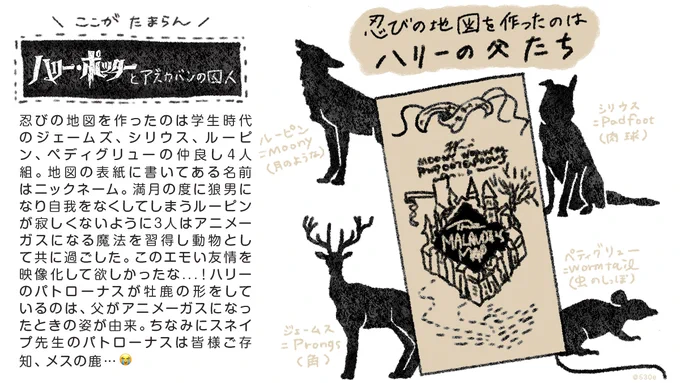 ＼ ここが たまらん ／
ハリー・ポッター とアズカバンの囚人
忍びの地図を作ったのは学生時代
のジェームズ、シリウス、ルーピ
ン、ペディグリューの仲良し4人
組。地図の表紙に書いてある名前
はニックネーム。満月の度に狼男に
なり自我をなくしてしまうルーピン
が寂しくないように3人はアニメー
ガスになる魔法を習得し動物とし
て共に過ごした。このエモい友情を
映像化して欲しかったな…！ハリー
のパトローナスが牡鹿の形をして
いるのは、父がアニメーガスになっ
たときの姿が由来。ちなみにスネイ
プ先生のパトローナスは皆様ご存
知、メスの鹿…😭
忍びの地図を作ったのは
ハリーの父たち
ルーピン
=Moony
(月のような)
シリウス
=Padfoot
(肉球)
MOONY WORMTAIL
MARAUDER'S
MAP
ジェームス
=Prongs
(角)
ペティグリュー
=Wormtail
(虫のしっぽ)